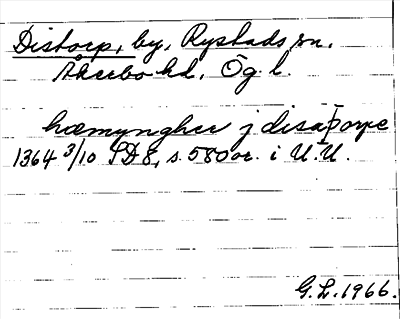 Distorp, by, Rystads sn.
Åkerbo hd, Ög. l.
hæmyngher j disaþorpe
1364 3/10 SD 8, s. 580 or. i U.U.
G.L. 1966.